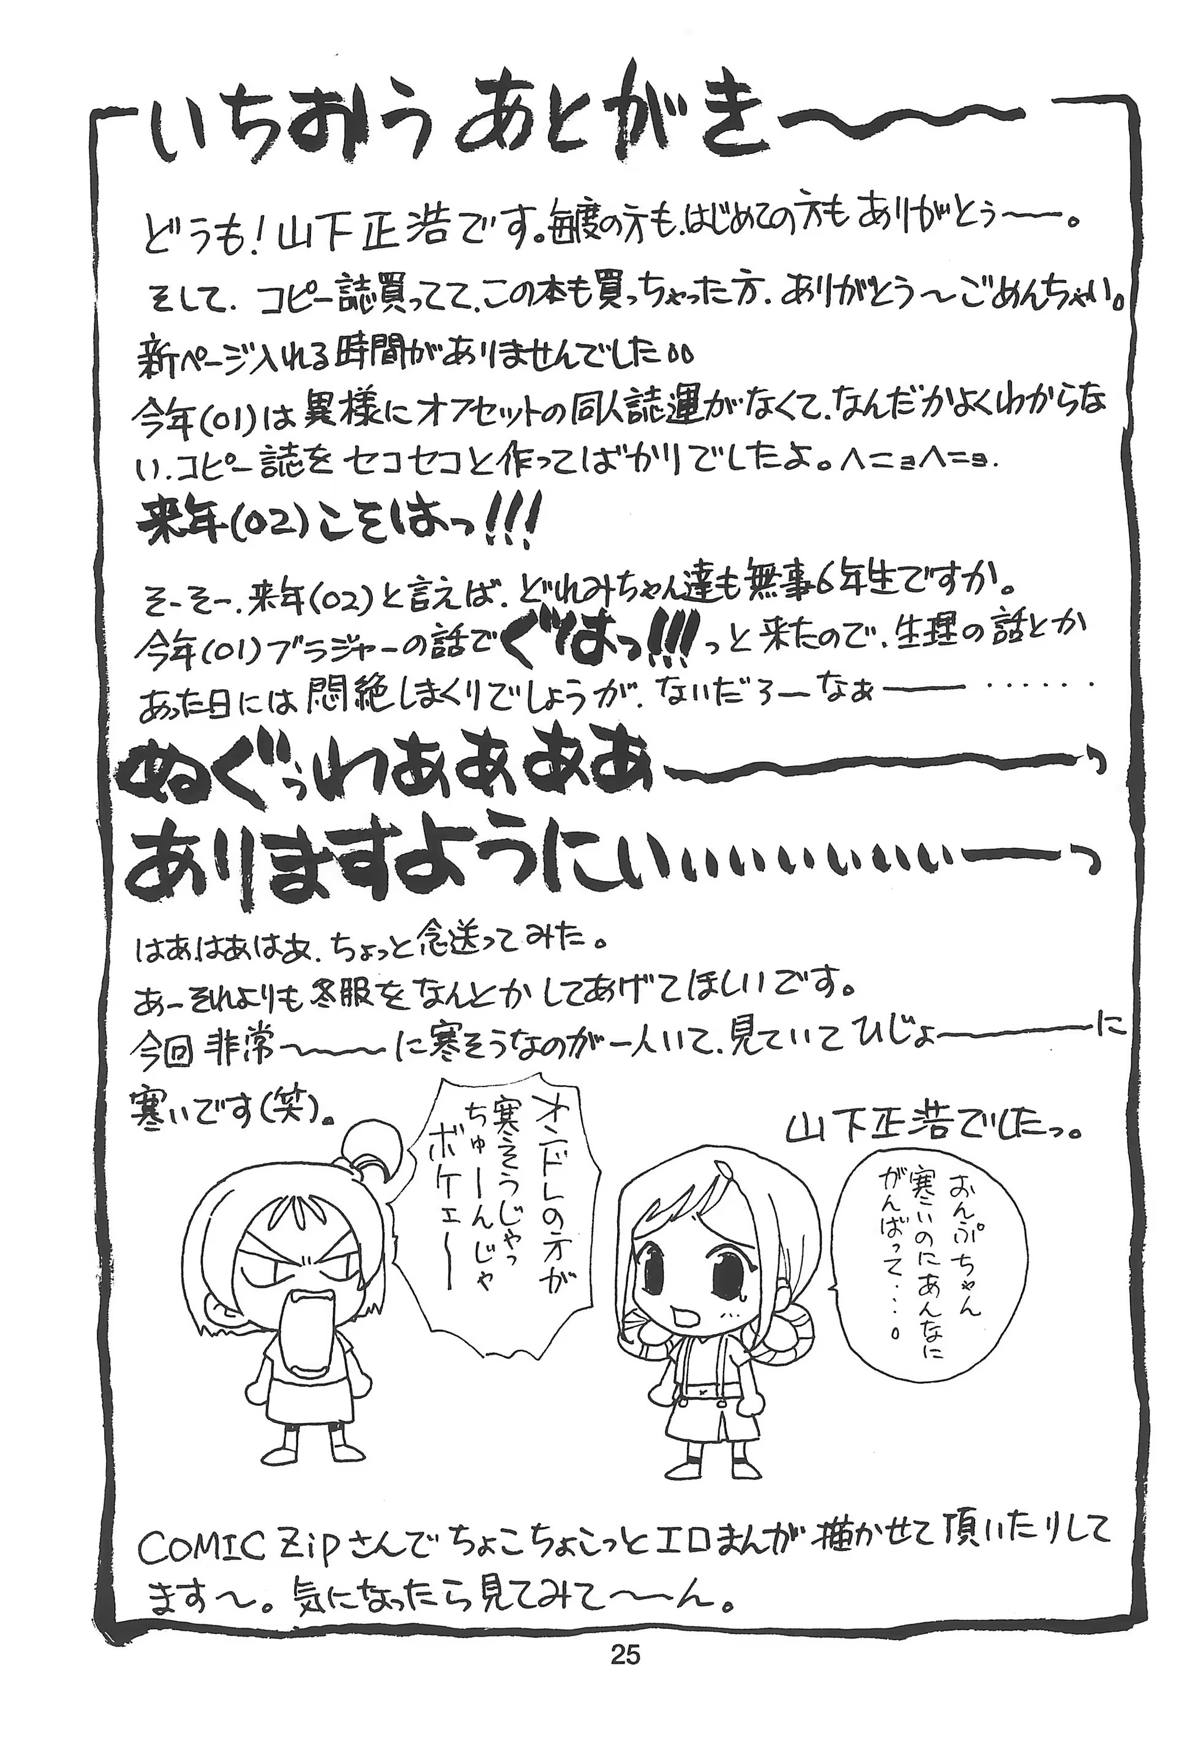 いちおうあとがき〜〜〜
どうも!山下正浩です。毎度の方も、はじめての方もありがとぅ〜ー。
そして、コピー誌買ってて、この本も買っちゃった方、ありがとう〜ごめんちゃい。
新ページ入れる時間がありませんでした。。
今年(01)は異様にオフセットの同人誌運がなくて、なんだかよくわからな
い、コピー誌をセコセコと作ってばかりでしたよ。ヘニョヘニョ。
来年(02)こそはっ!!!
そーそー、来年(02)と言えば、どれみちゃん達も無事6年生ですか。
今年(01)ブラジャーの話でぐはっ!!!っと来たので、生理の話とか
あった日には悶絶しまくりでしょうが、ないだろーなぁー ‥‥‥
ぬぐぅわぁぁぁあ〜〜〜っ
ありますようにいぃぃぃぃぃぃーっ
はあはあはあ、ちょっと念送ってみた。
あーそれよりも冬服をなんとかしてあげてほしいです。
今回非常〜〜〜に寒そうなのが一人いて、見ていてひじょーーーに
寒いです(笑)。
山下正浩でしたっ。
オンドレの方が
寒そうじゃっ
ちゅーんじゃ
ボケェー
おんぷちゃん
寒いのにあんなに
がんばって・・・。
COMIC Zipさんでちょこちょこっとエロまんが描かせて頂いたりして
ます〜。気になったら見てみて〜ーん。
25